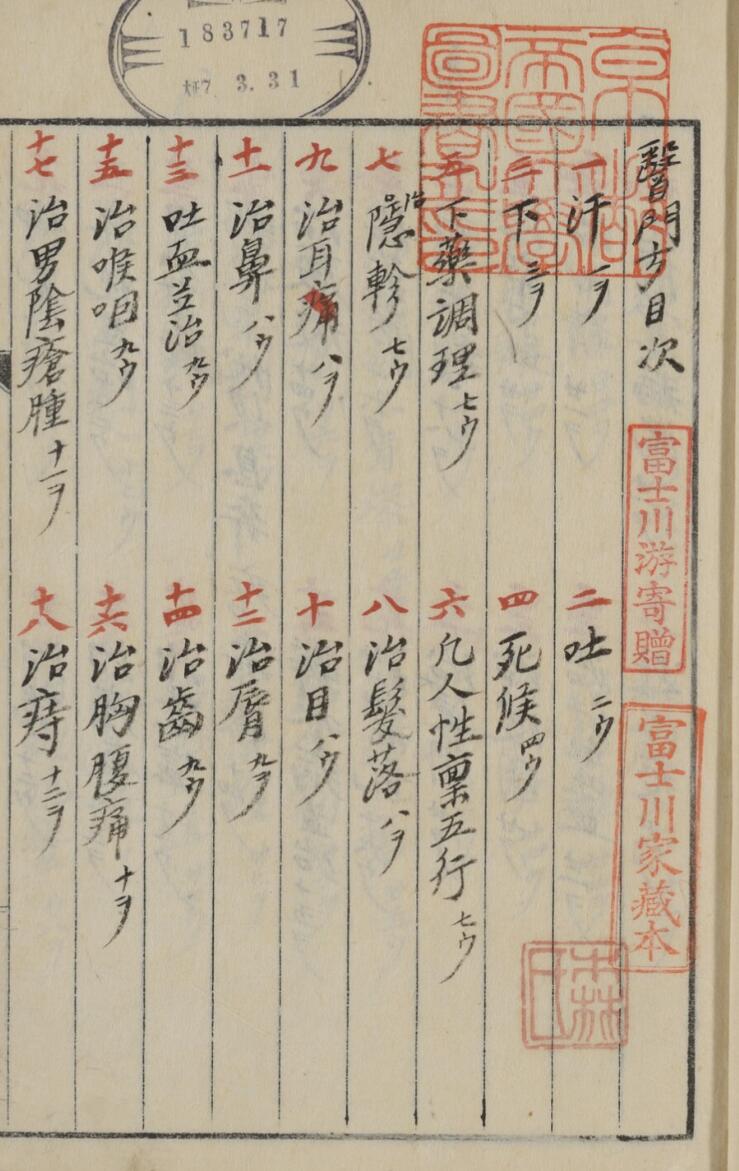 183717
大正7. 3. 31
京都
帝國大學
圖書之印
醫門方目次
富士川游寄贈
富士川家藏本
森氏
一 汗 一ヲ 二 吐 二ウ
三 下 三ヲ 四 死候 四ウ
五 下藥調理 七ウ 六 凡人性禀五行 七ウ
七 治隱軫 七ウ 八 治髮落 八ヲ
九 治耳痛 八ヲ 十 治目 八ウ
十一 治鼻 八ウ 十二 治脣 九ヲ
十三 吐血並治 九ウ 十四 治齒 九ウ
十五 治喉咽 九ウ 十六 治胸腹痛 十ヲ
十七 治男陰瘡腫 十一ヲ 十八 治痔 十二ヲ